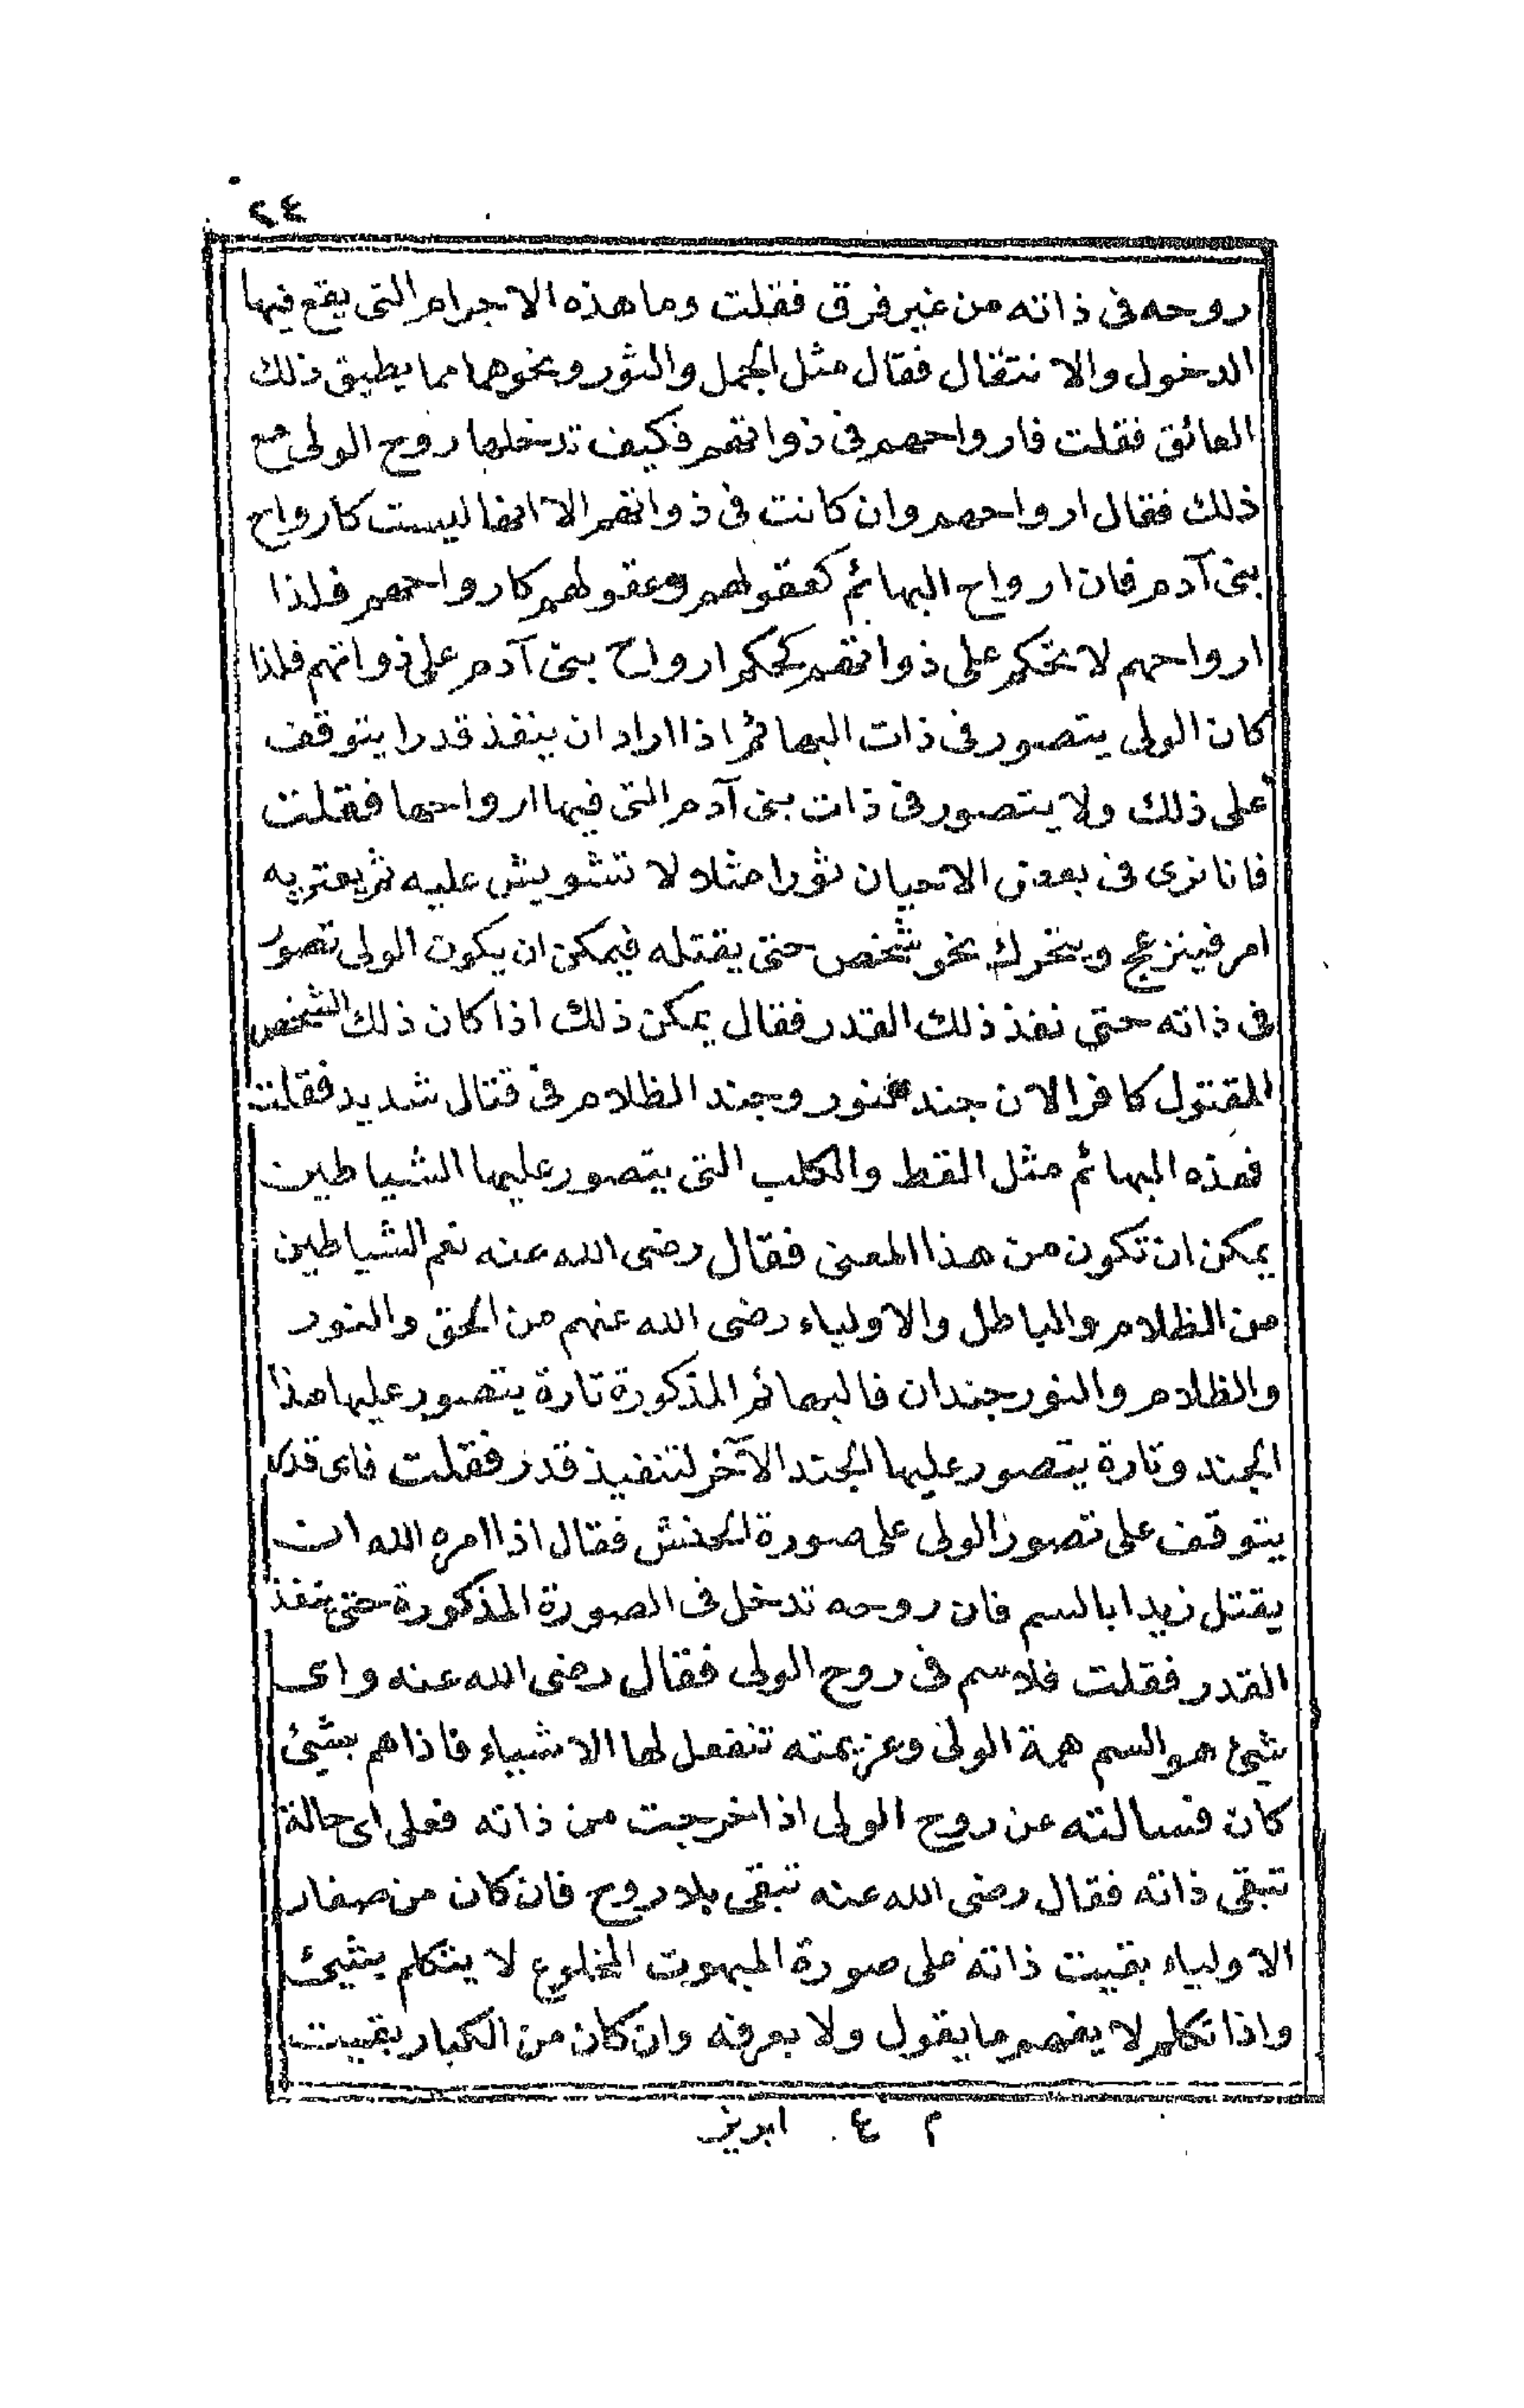 ٢٤
روحه فى ذاته من غير فرق فقلت وما هذه الاجرام التى يقع فيها
الدخول والانتقال فقال مثل الجمل والثور ونحوهما مما يطيق ذلك
العائق فقلت فارواحهم فى ذواتهم فكيف تدخلها روح الولى مع
ذلك فقال ارواحهم وان كانت فى ذواتهم الا انها ليست كارواح
بنى آدم فان ارواح البهائم كعقولهم وعقولهم كارواحهم فلذا
ارواحهم لا تحكم على ذواتهم كحكم ارواح بنى آدم على ذواتهم فلذا
كان الولى يتصور فى ذات البهائم اذا اراد ان ينفذ قدرا يتوقف
على ذلك ولا يتصور فى ذات بنى آدم التى فيها ارواحها فقلت
فانا نرى فى بعض الاحيان ثورا مثلا لا تشويش عليه ثم يعتريه
امر فينزعج ويتحرك نحو شخص حتى يقتله فيمكن ان يكون الولى تصور
فى ذاته حتى نفذ ذلك القدر فقال يمكن ذلك اذا كان ذلك الشخص
المقتول كافرا لان جند النور وجند الظلام فى قتال شديد فقلت
فهذه البهائم مثل القط والكلب التى يتصور عليها الشياطين
يمكن ان تكون من هذا المعنى فقال رضى الله عنه نعم الشياطين
من الظلام والباطل والاولياء رضى الله عنهم من الحق والنور
والظلام والنور جندان فالبهائم المذكورة تارة يتصور عليها هذا
الجند وتارة يتصور عليها الجند الآخر لتنفيذ قدر فقلت فاى قدر
يتوقف على تصور الولى على صورة الحنش فقال اذا امره الله ان
يقتل زيدا بالسم فان روحه تدخل فى الصورة المذكورة حتى تنفذ
القدر فقلت فلا سم فى روح الولى فقال رضى الله عنه واى
شئ هو السم همة الولى وعزيمته تنفعل لها الاشياء فاذا هم بشئ
كان فسالته عن روح الولى اذا خرجت من ذاته فعلى اى حالة
تبقى ذاته فقال رضى الله عنه تبقى بلا روح فان كان من صغار
الاولياء بقيت ذاته على صورة المبهوت المخلوع لا يتكلم بشئ
واذا تكلم لا يفهم ما يقول ولا يعرفه وان كان من الكبار بقيت
م ٤ ابريز